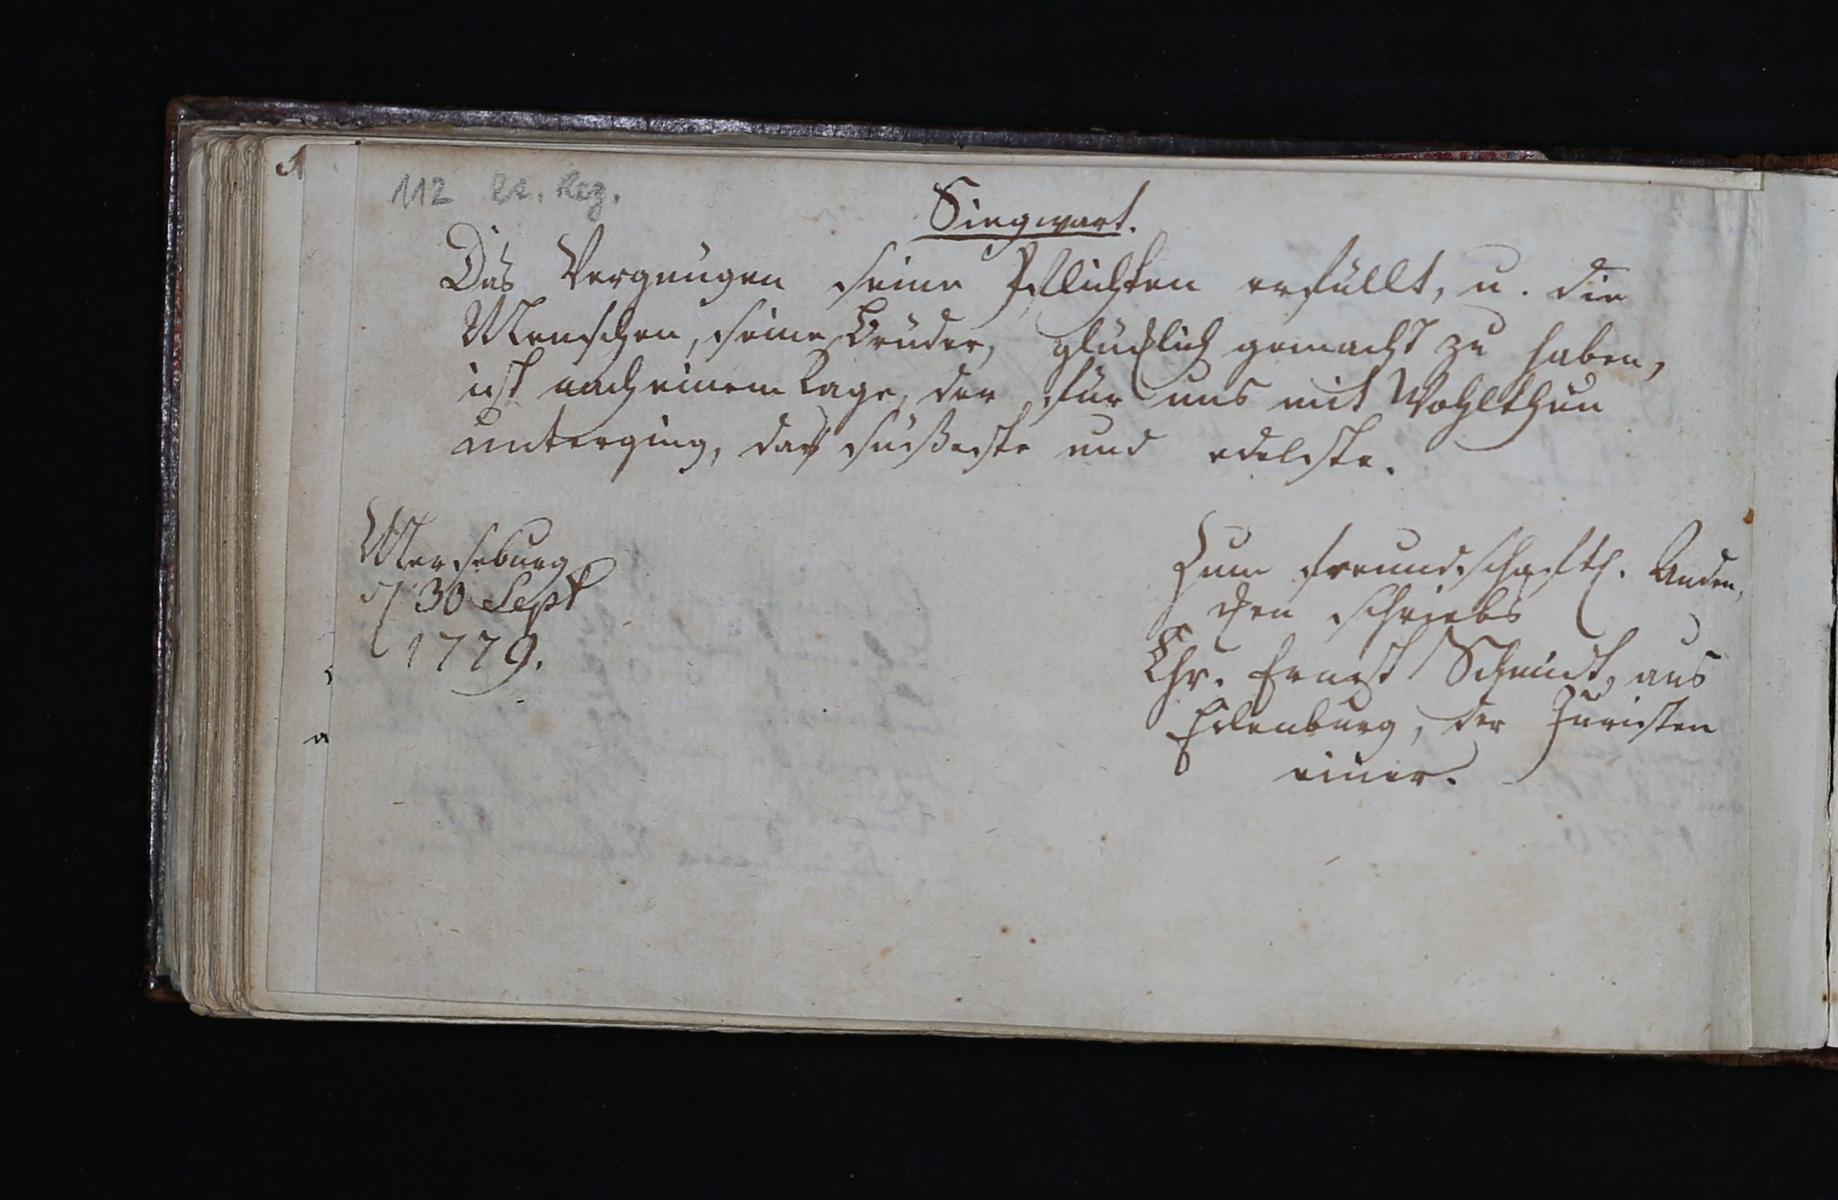 112
Siegwart.
Das Vergnügen seine Pflichten erfüllt, u. die
Menschen, seine Brüder, glücklich gemacht zu haben,
ist nach einem Tage, der für uns mit Wohlthun
unterging, das süßeste und edelste.
Merseburg
d 30 Sept
1779.
Zum freundschaftl. Anden,
cken schriebs
Chr. Ernst Schmidt, aus
Eilenburg, der Juristen
einer.